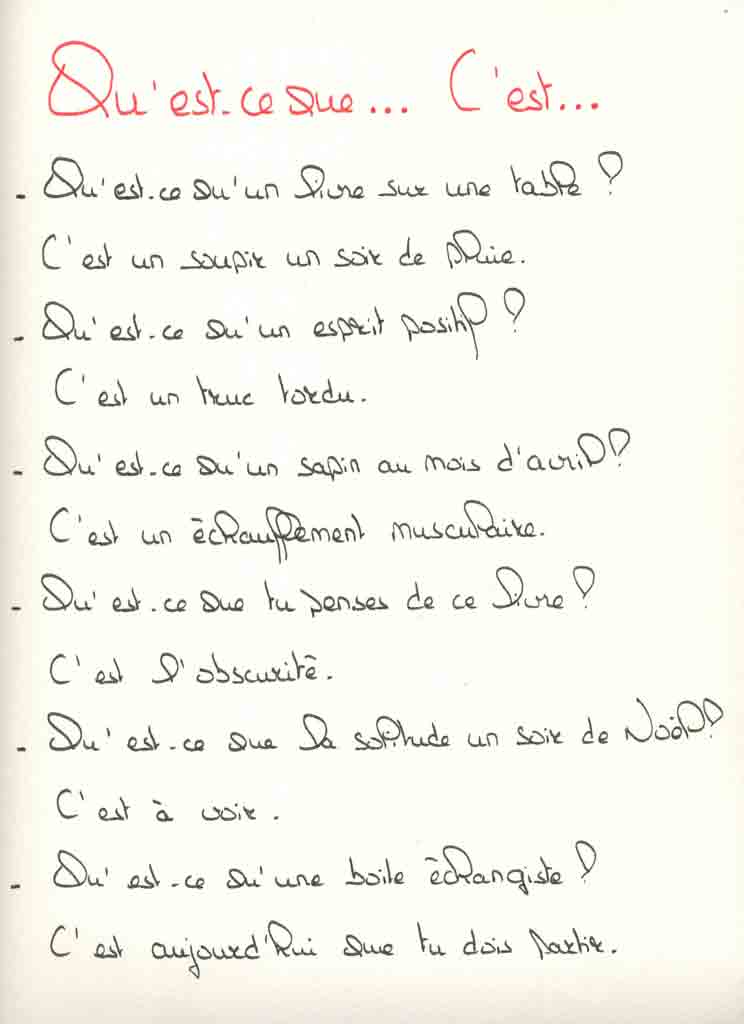 Qu'est-ce que... C'est...
- Qu'est-ce qu'un livre sur une table ?
C'est un soupir un soir de pluie.
- Qu'est-ce qu'un esprit positif ?
C'est un truc tordu.
- Qu'est-ce qu'un sapin au mois d'avril ?
C'est un échauffement musculaire.
- Qu'est-ce que tu penses de ce livre ?
C'est l'obscurité.
- Qu'est-ce que la solitude un soir de Noël ?
C'est à voir.
- Qu'est-ce qu'une boite échangiste ?
C'est aujourd'hui que tu dois partir.